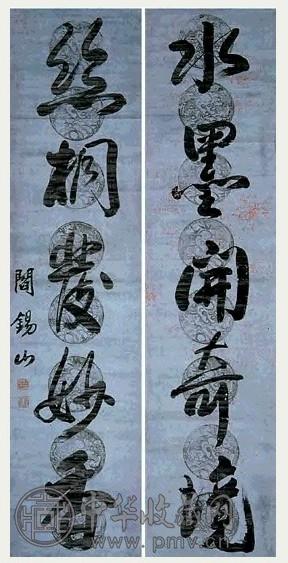 水墨開奇境
絲桐發妙音
閻錫山
中华收藏网
www.pmv.cn